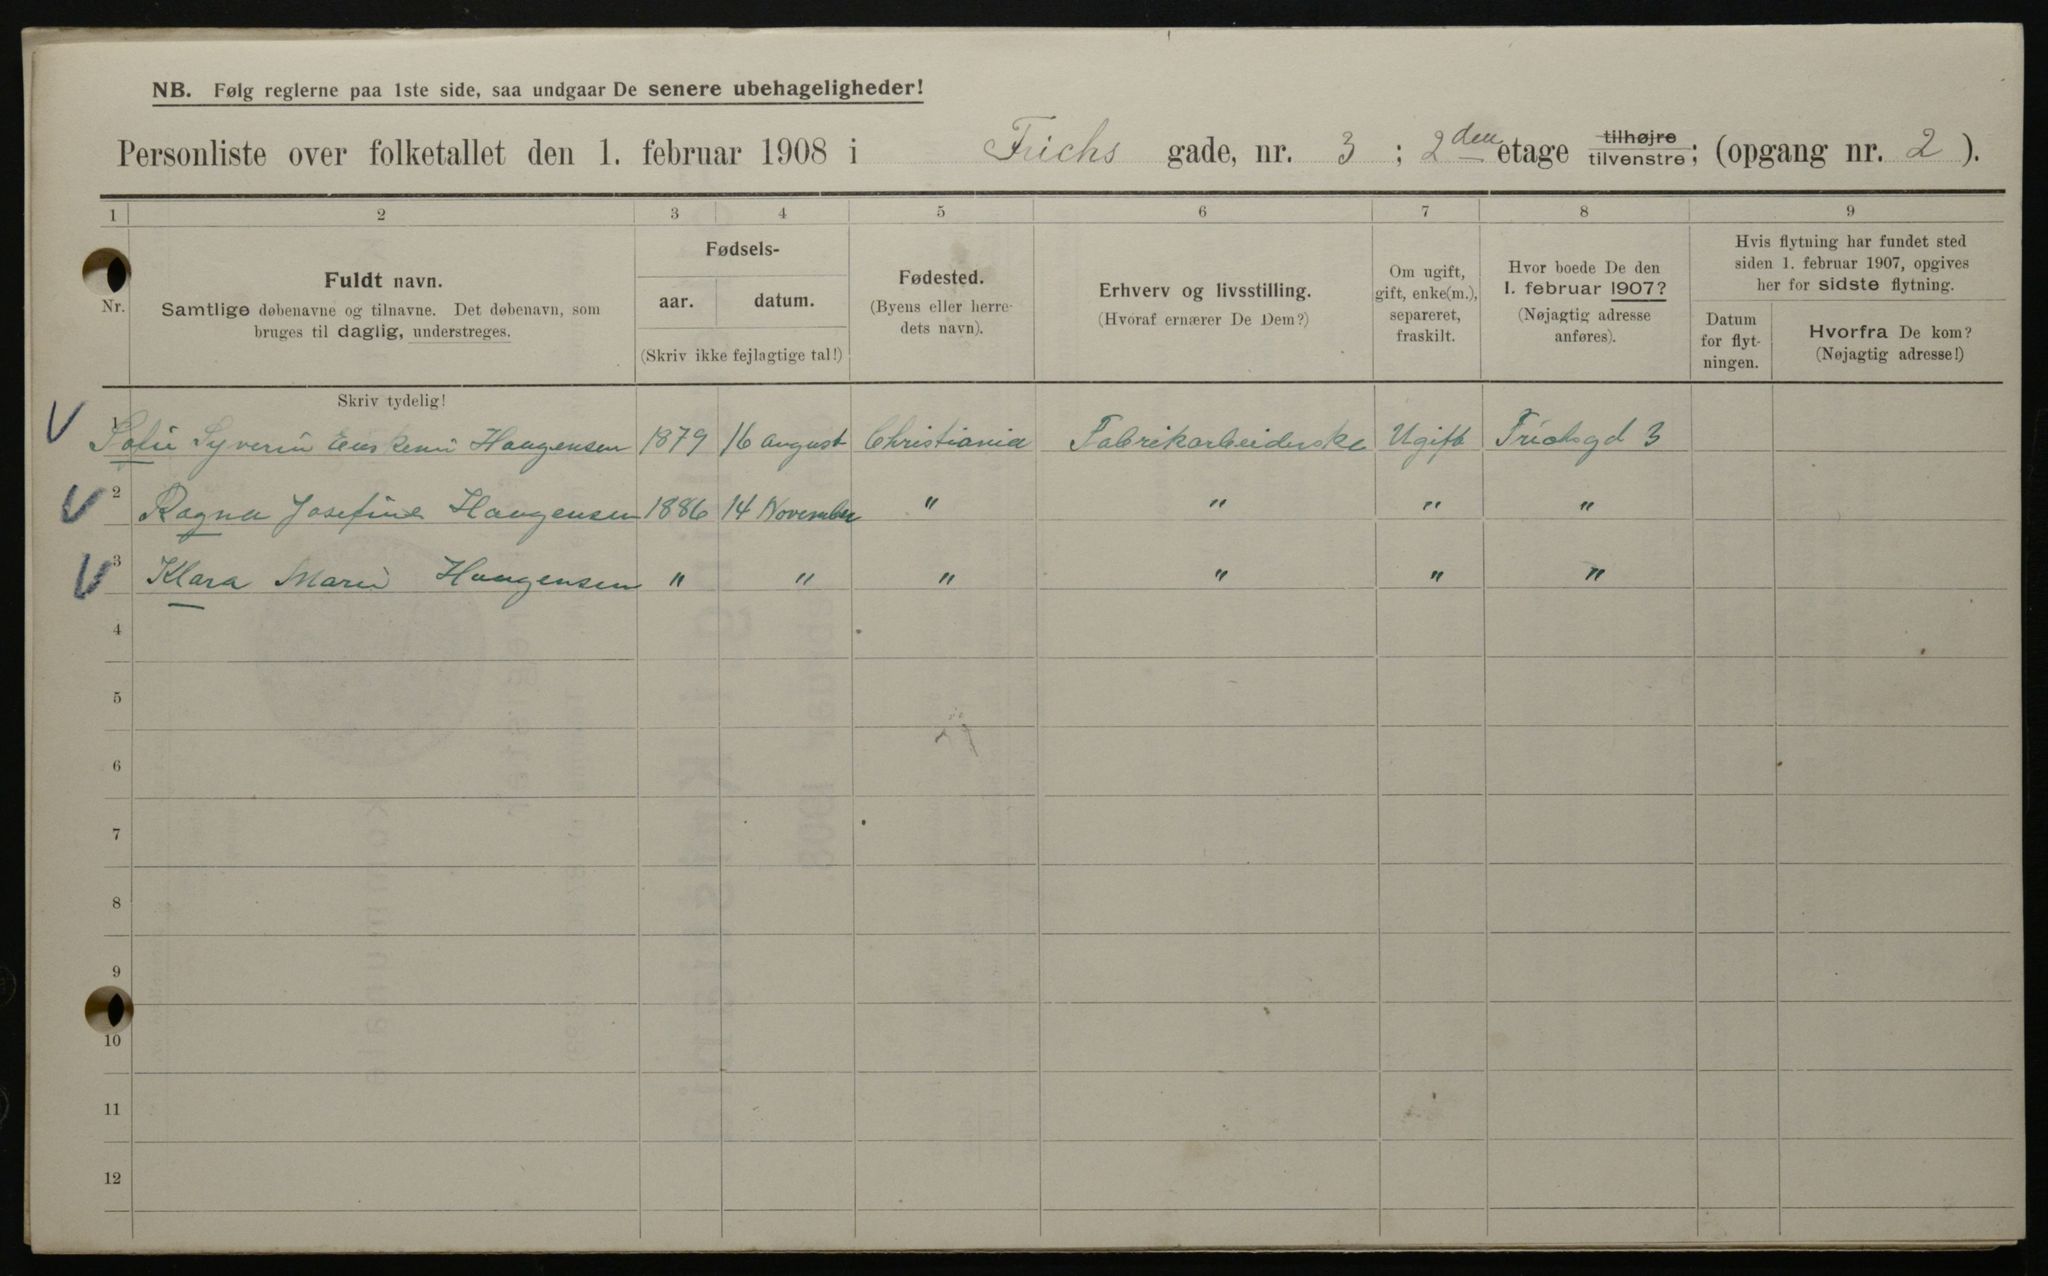 NB. Følg reglerne paa 1ste side, saa undgaar De senere ubehageligheder!
Personliste over folketallet den 1. februar 1908 i Frichs gade, nr. 3 ; 2den etage tilhøjre tilvenstre; (opgang nr. 2 ).
1 2 3 4 5 6 7 8 9
Nr.
Fuldt navn.
Samtlige døbenavne og tilnavne. Det døbenavn, som
bruges til daglig, understreges.
Skriv tydelig!
Fødsels-
aar. datum.
(Skriv ikke fejlagtige tal!)
Fødested.
(Byens eller herre-
dets navn).
Erhverv og livsstilling.
(Hvoraf ernærer De Dem?)
Om ugift,
gift, enke(m.),
separeret,
fraskilt.
Hvor boede De den
1. februar 1907?
(Nøjagtig adresse
anføres).
Hvis flytning har fundet sted
siden 1. februar 1907, opgives
her for sidste flytning.
Datum
for flyt-
ningen.
Hvorfra De kom?
(Nøjagtig adresse!)
V 1 Sofie Syverin Haagensen 1879 16 august Christiania Fabrikarbeiderske Ugift Frichsgd 3
V 2 Ragna Josefine Haagensen 1886 14 November " " " "
V 3 Klara Marie Haagensen " " " " " "
4
5
6
7
8
9
10
11
12